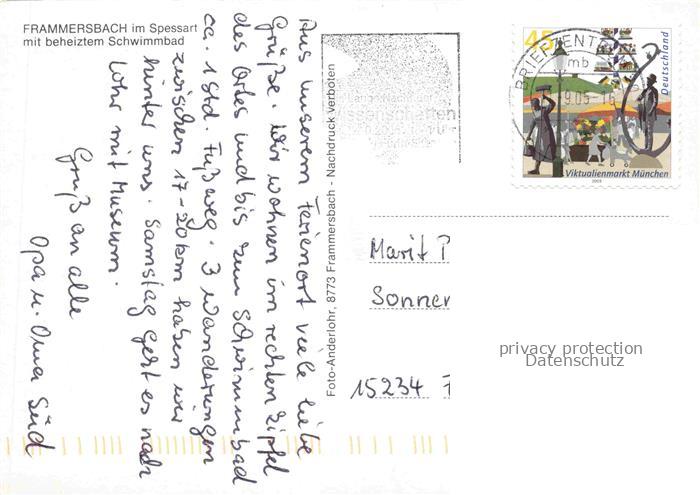 FRAMMERSBACH im Spessart
mit beheiztem Schwimmbad
Aus unserem Ferienort viele liebe
Grüße. Wir wohnen im rechten Zipfel
des Ortes und bis zum Schwimmbad
ca. 1 Std. Fußweg. 3 Wanderungen
zwischen 17-20 km haben wir
hinter uns. Samstag geht es nach
Lohr mit Museum.
Gruß an alle
Opa u. Oma Süd
Foto-Anderlohr, 8773 Frammersbach - Nachdruck verboten
45
Deutschland
BRIEFZENTR
mb
Viktualienmarkt München
2003
Marit P
Sonner
15234 F
privacy protection
Datenschutz